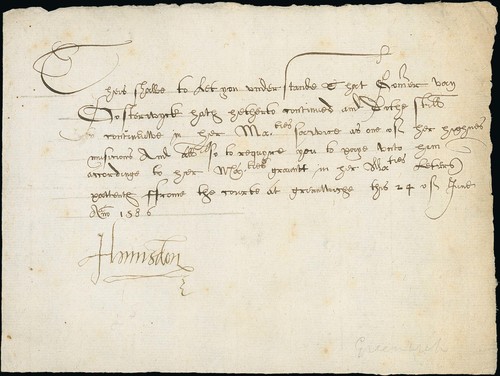 Theis shalbe to Let you understande That Gomer van
Oosterwyck hath hetherto continued and dothe still
continewe in her Ma:ties service as one of her highnes
musicions And also to requyre you to paye unto him
accordinge to her Ma:ties graunt in her Ma:ties Letters
pattents ffrome the courte at grenewiche this 24 of June
Ano 1586
Hunsdon
Greenwich